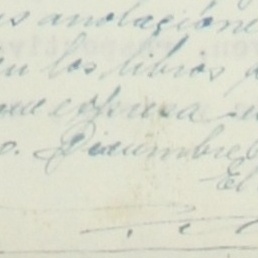 s anotacione
en los libros
que expresa
o. Diciembre
El